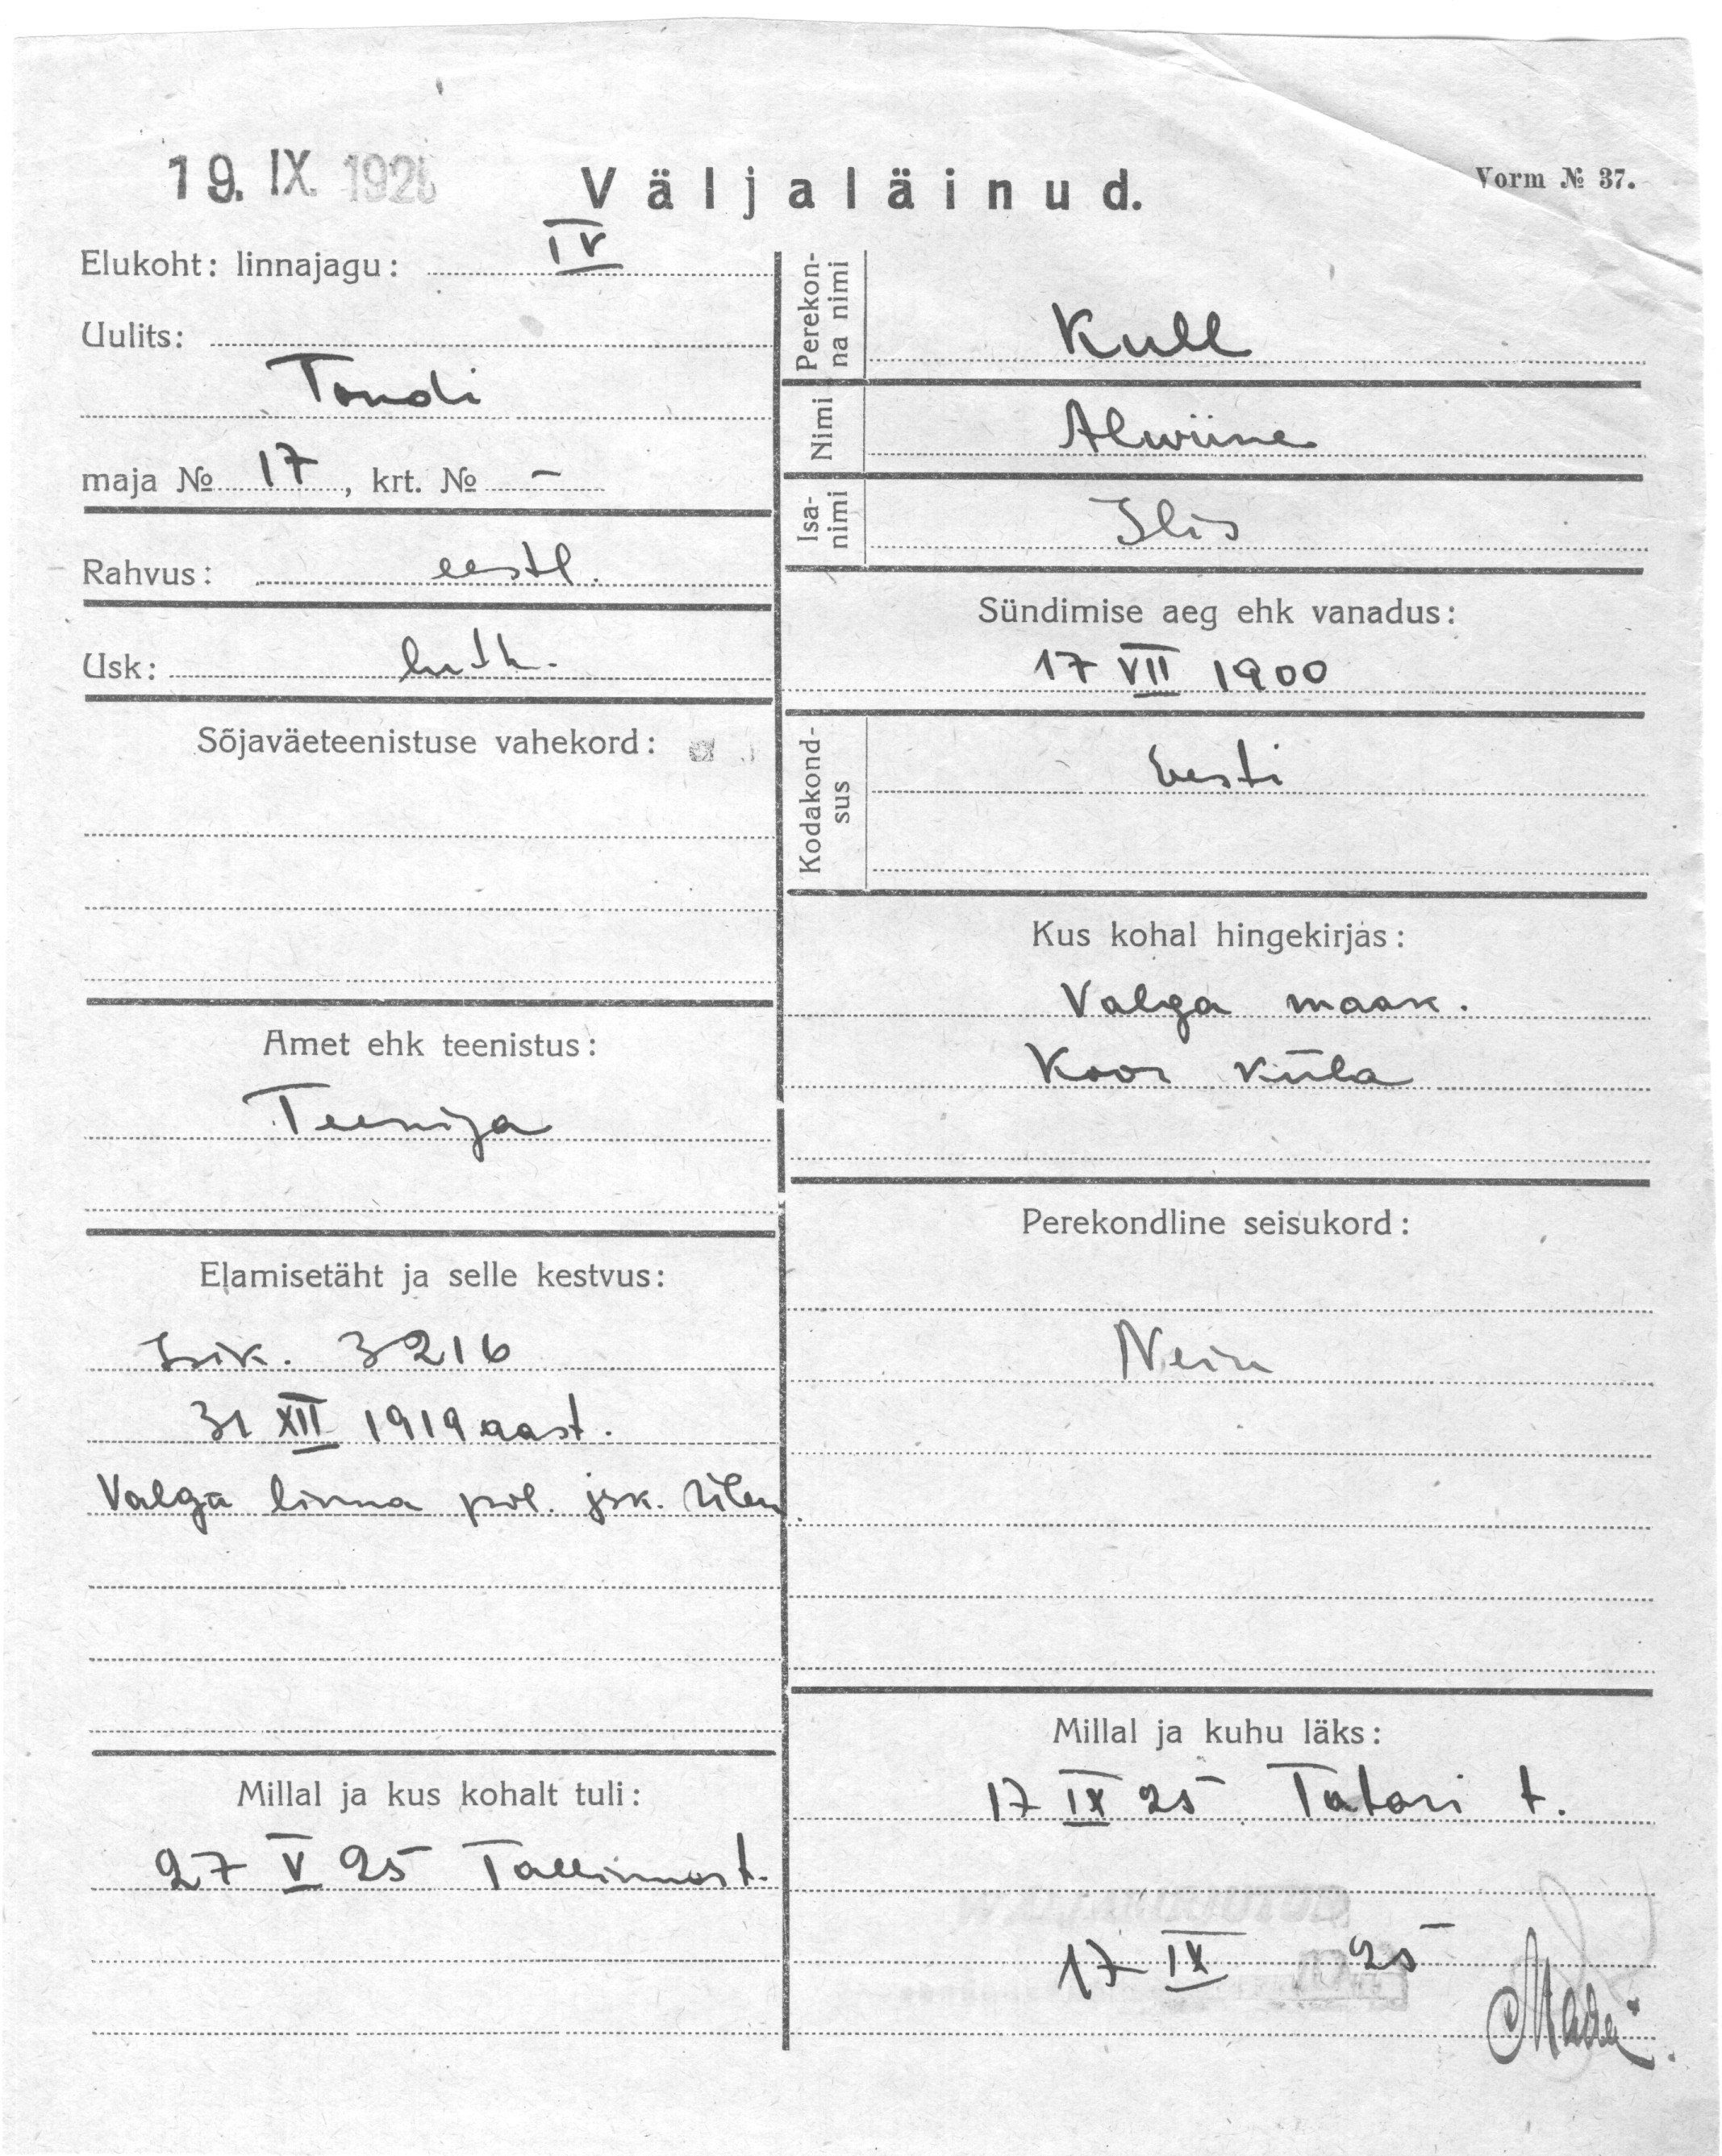 19. IX. 1925
Väljaläinud.
Vorm № 37.
Elukoht: linnajagu: IV
Uulits:
Tondi
maja № 17, krt. № –
Rahvus: eestl.
Usk: luth.
Sõjaväeteenistuse vahekord:
Amet ehk teenistus:
Teenija
Elamisetäht ja selle kestvus:
Isik. 3216
31 XII 1919 aast.
Valga linna pol. jsk. ülem.
Millal ja kus kohalt tuli:
27 V 25 Tallinnast.
Perekon-
na nimi
Kull
Nimi
Alwiine
Isa-
nimi
Sündimise aeg ehk vanadus:
17 VII 1900
Kodakond-
sus
Eesti
Kus kohal hingekirjas:
Valga maak.
Koor küla
Perekondline seisukord:
Neiu
Millal ja kuhu läks:
17 IX 25 Tatari t.
17 IX 25